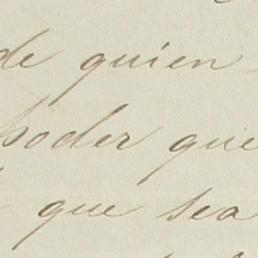 de quien
poder que
que sea